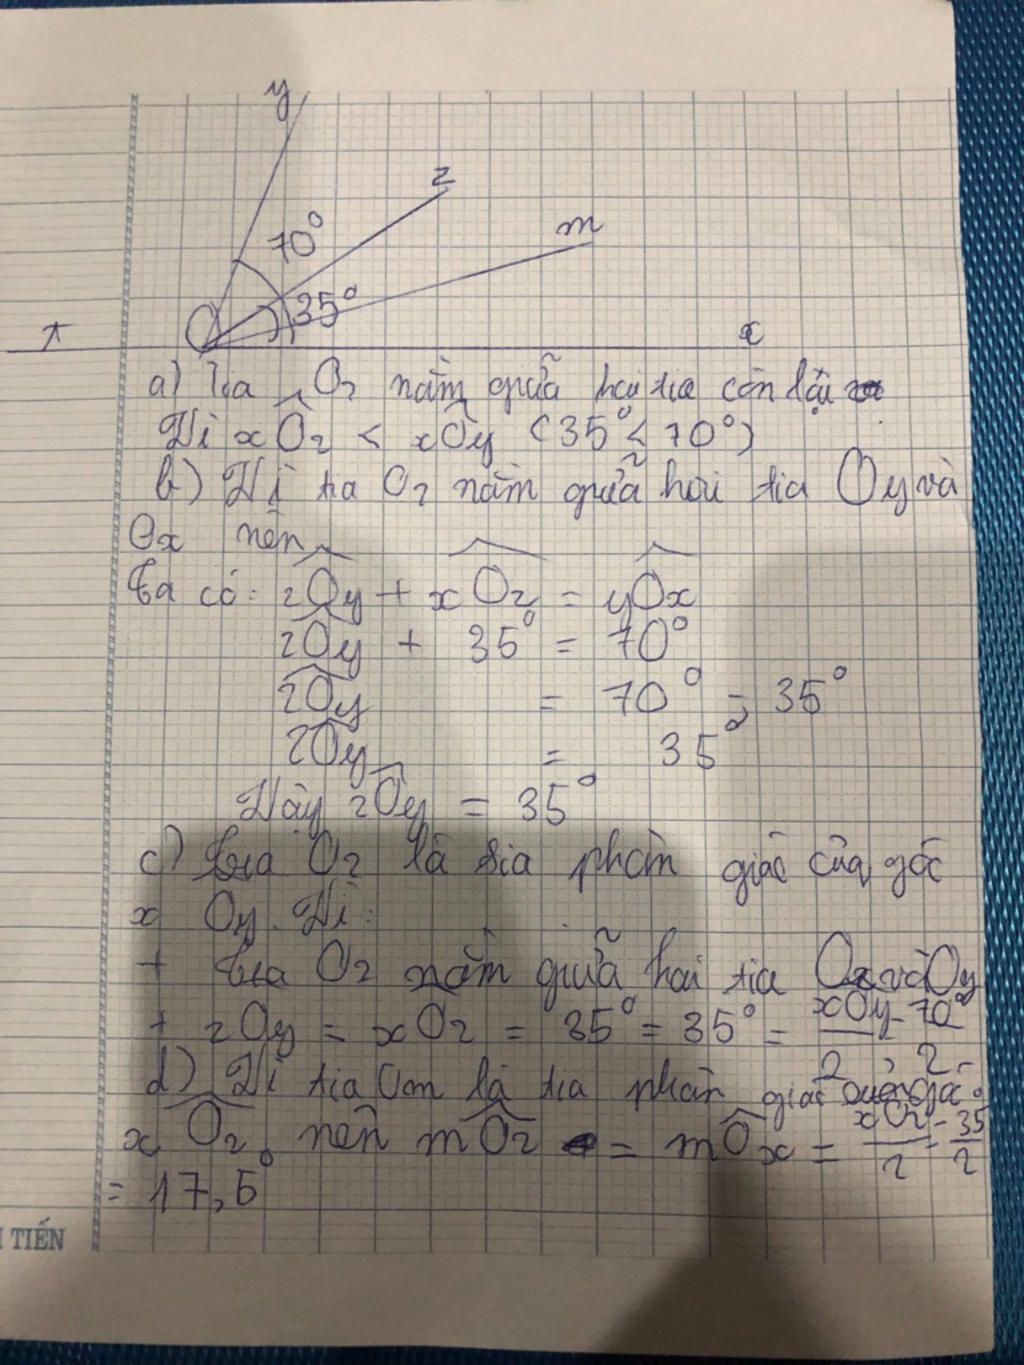 y
z
70°
m
35°
O
x
a) Tia Oz nằm giữa hai tia còn lại
Vì xÔz < xÔy (35° < 70°)
b) Vì tia Oz nằm giữa hai tia Oy và
Ox nên
Ta có: zÔy + xÔz = yÔx
zÔy + 35° = 70°
zÔy = 70° - 35°
zÔy = 35°
Vậy zÔy = 35°
c) Tia Oz là tia phân giác của góc
xOy. Vì:
+ Tia Oz nằm giữa hai tia Ox và Oy
+ zOy = xOz = 35° = 35° = xOy/2 = 70°/2
d) Vì tia Om là tia phân giác của góc
xÔz nên mÔz = mÔx = xOz/2 = 35/2
= 17,5°
TIẾN